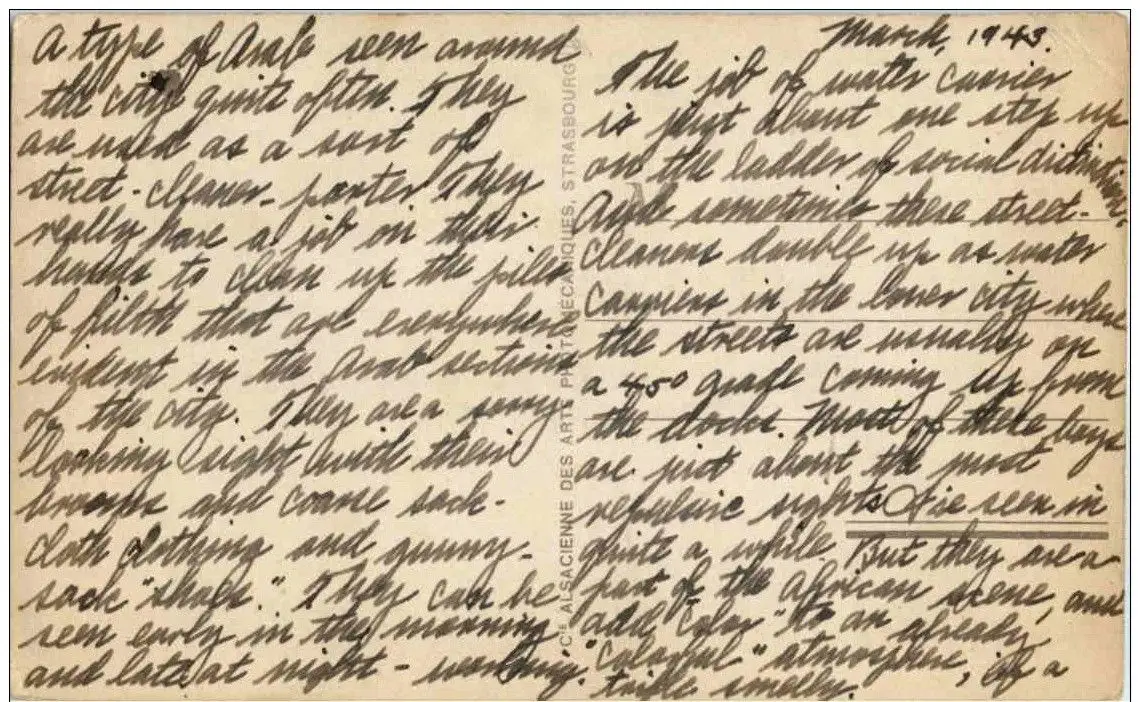 A type of Arab seen around
the city quite often. They
are used as a sort of
street-cleaner-porter. They
really have a job on their
hands to clean up the piles
of filth that are everywhere
evident in the Arab sections
of the city. They are a sorry
looking sight with their
brooms and coarse sack-
cloth clothing and gunny-
sack "shoes." They can be
seen early in the morning
and late at night - "working".
March, 1943.
The job of water carrier
is just about one step up
on the ladder of social distinction.
And sometimes these street-
cleaners double up as water
carriers in the lower city where
the streets are usually on
a 45° grade coming up from
the docks. Most of these boys
are just about the most
repulsive sights I've seen in
quite a while. But they are a
part of the African scene, and
add "color" to an already
"colorful" atmosphere, if a
trifle smelly.
Cie ALSACIENNE DES ARTS PHOTOMÉCANIQUES, STRASBOURG